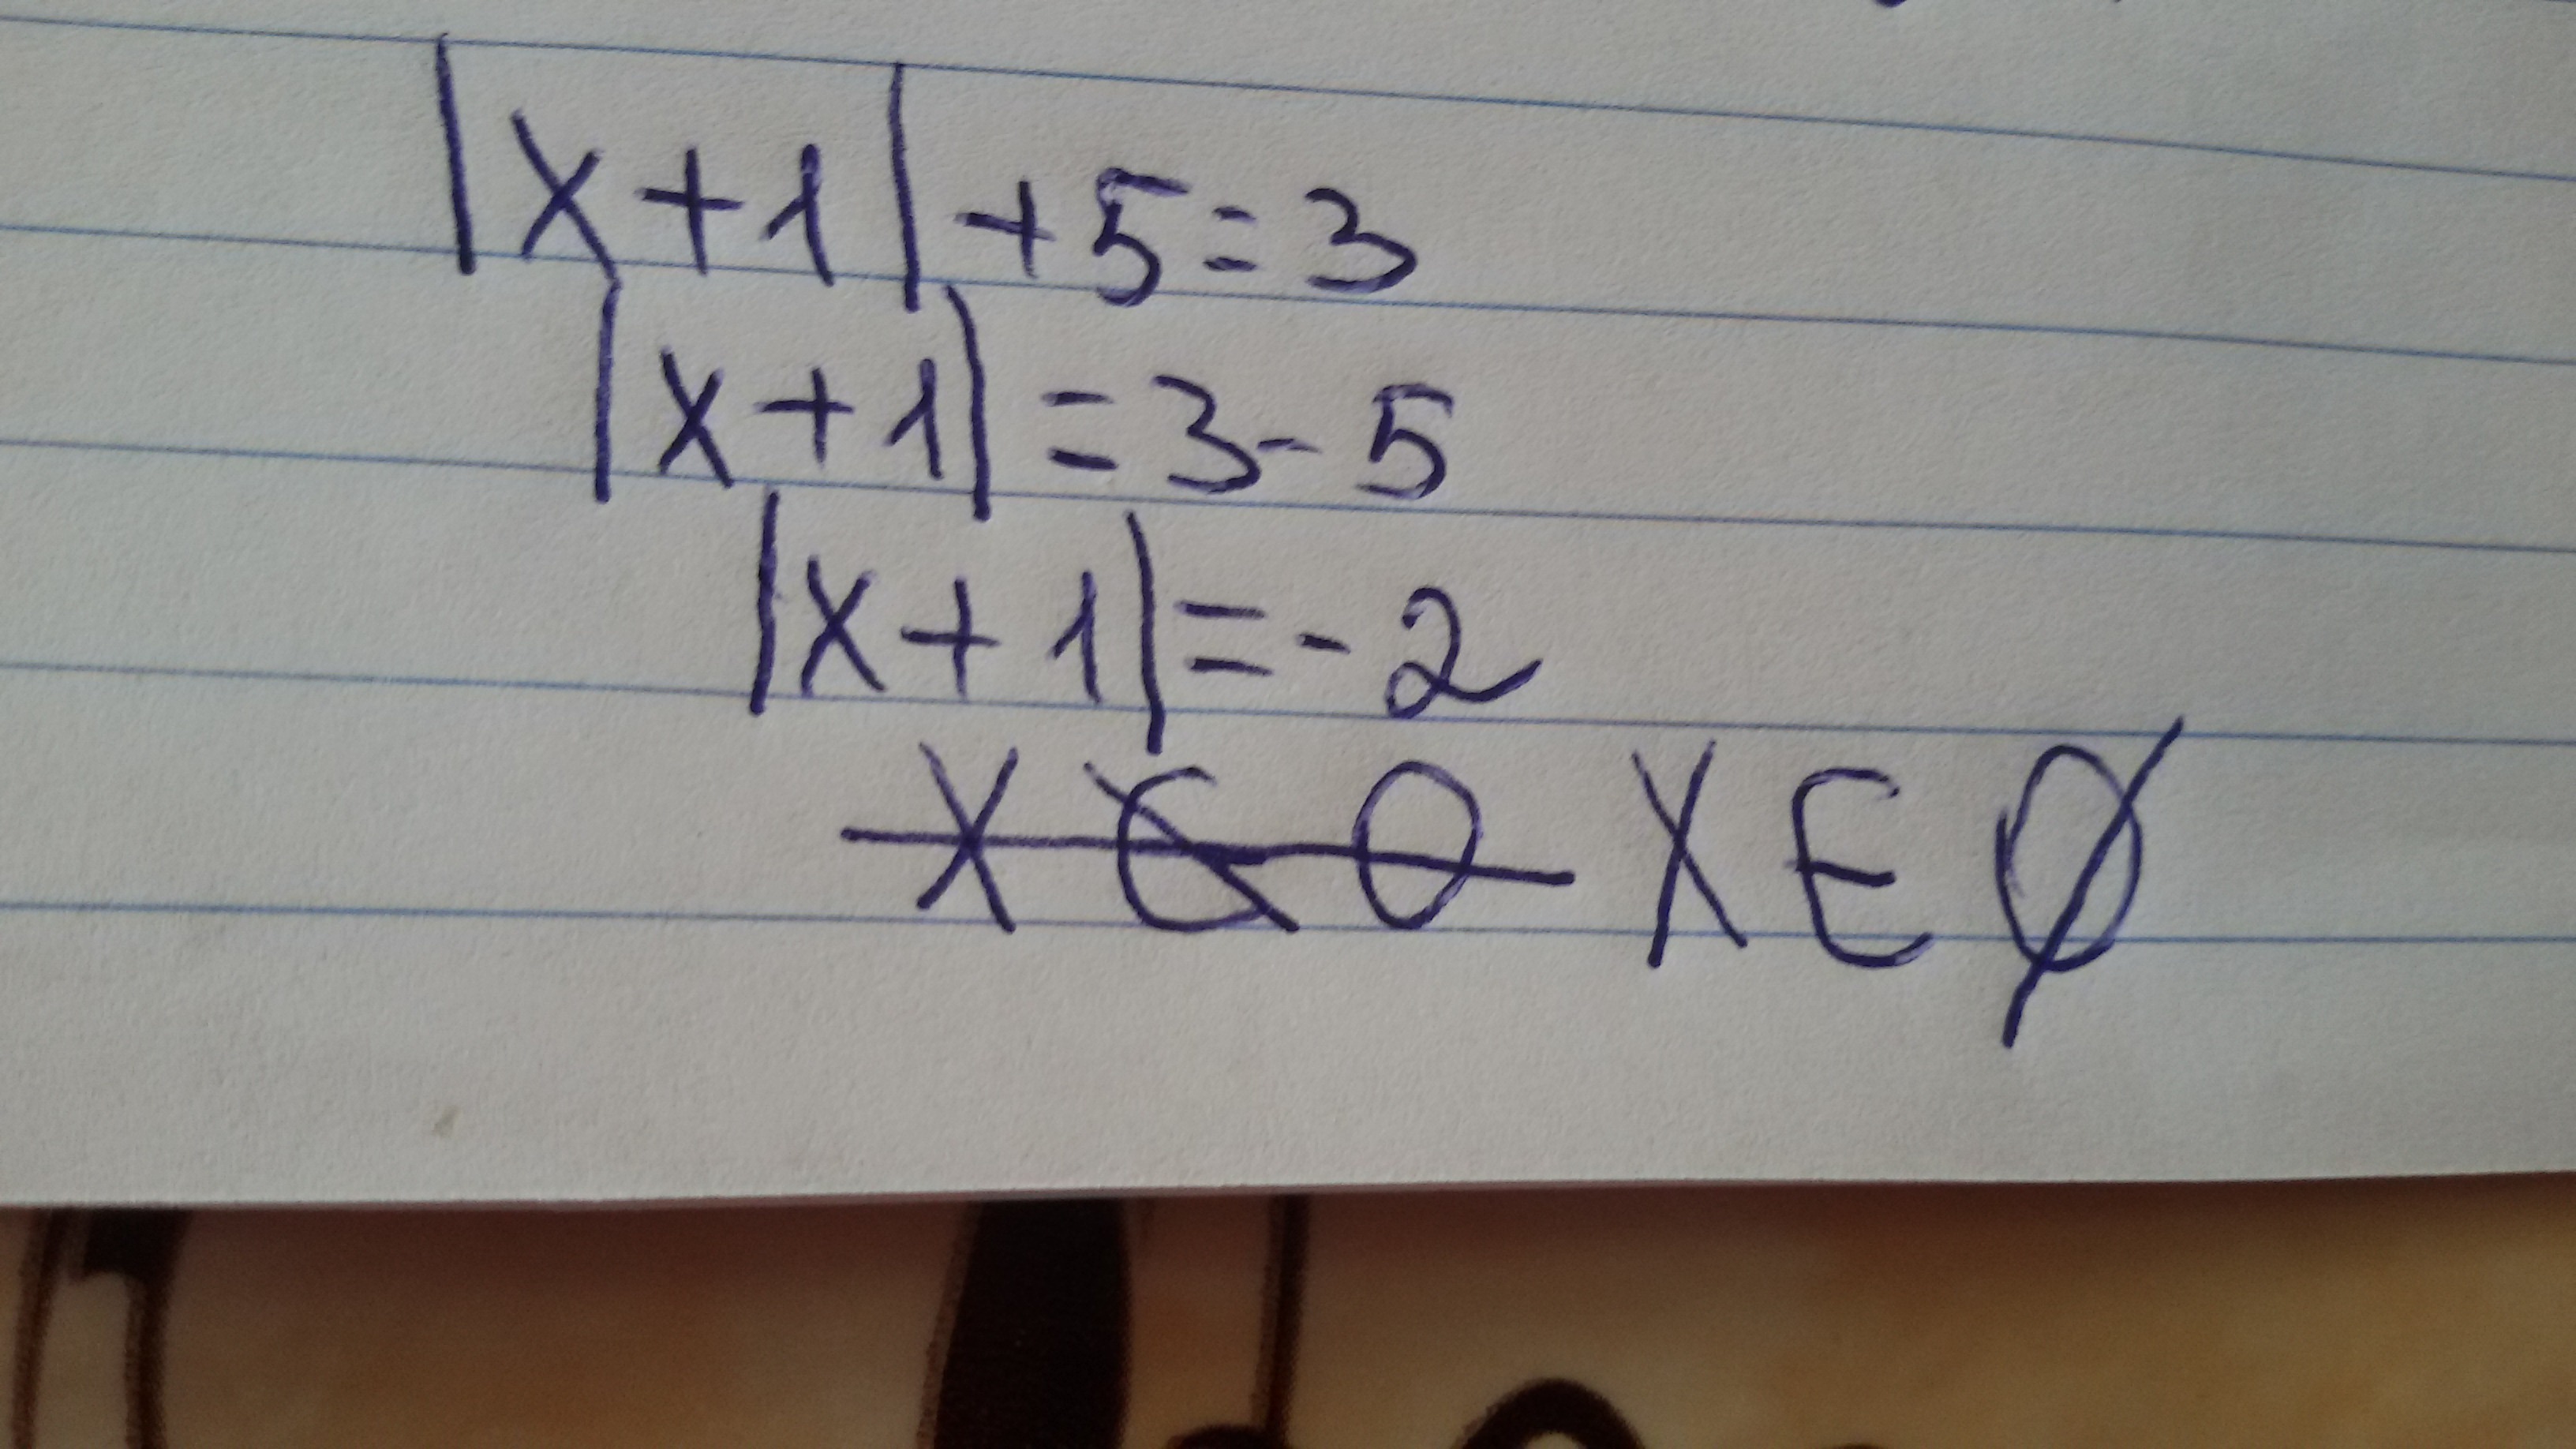 |x+1|+5=3
|x+1|=3-5
|x+1|=-2
x∈∅